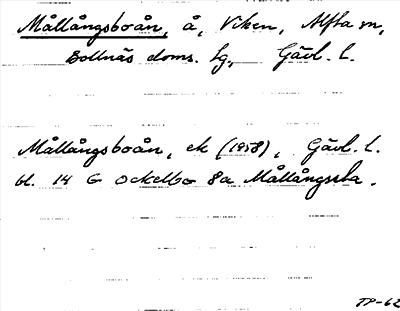 Mållångsboån, å, Viken, Alfta sn,
Bollnäs doms. lg, Gävl. l.
Mållångsboån, ek (1958), Gävl. l.
bl. 14 G Ockelbo 8a Mållångssta.
TP-62